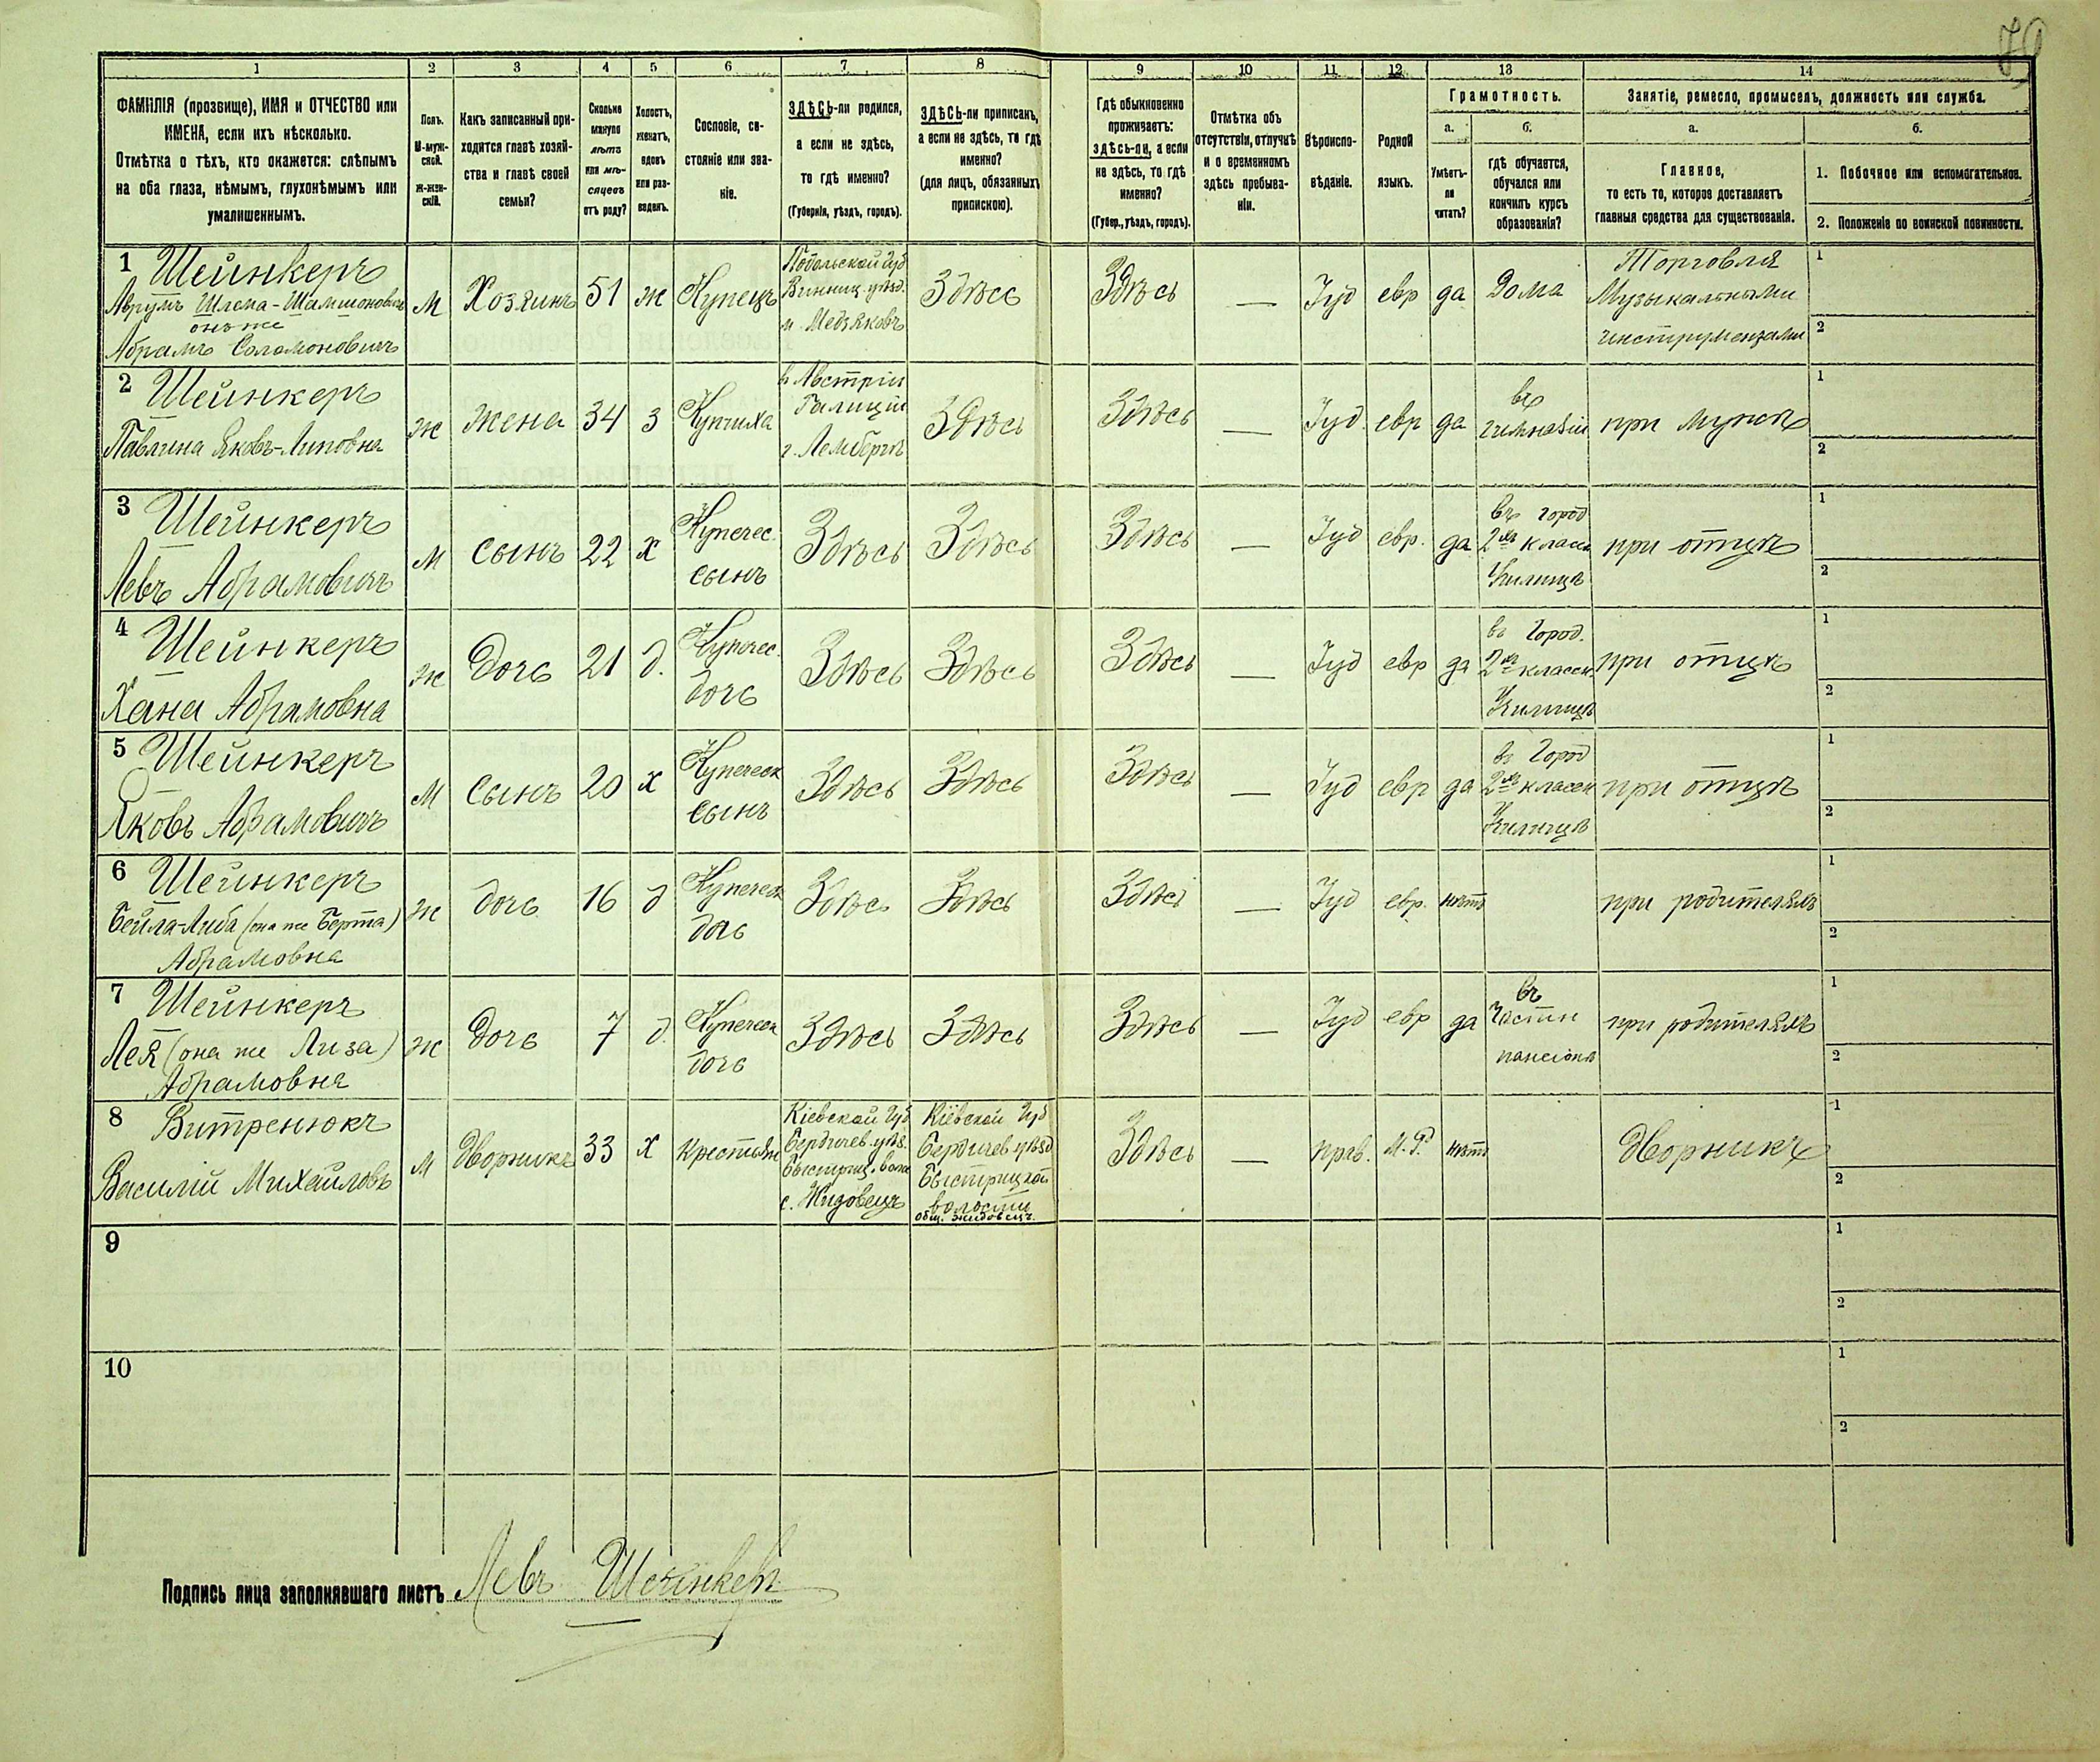 79
1 2 3 4 5 6 7 8 9 10 11 12 13 14
ФАМИЛІЯ (прозвище), ИМЯ и ОТЧЕСТВО или
ИМЕНА, если ихъ нѣсколько.
Отмѣтка о тѣхъ, кто окажется: слѣпымъ
на оба глаза, нѣмымъ, глухонѣмымъ или
умалишеннымъ.
Полъ.
М-муж-
ской.
Ж-жен-
скій.
Какъ записанный при-
ходится главѣ хозяй-
ства и главѣ своей
семьи?
Сколько
минуло
лѣтъ
или мѣ-
сяцевъ
отъ роду?
Холостъ,
женатъ,
вдовъ
или раз-
веденъ.
Сословіе, со-
стояніе или зва-
ніе.
ЗДѢСЬ-ли родился,
а если не здѣсь,
то гдѣ именно?
(Губернія, уѣздъ, городъ).
ЗДѢСЬ-ли приписанъ,
а если не здѣсь, то гдѣ
именно?
(для лицъ, обязанныхъ
припискою).
Гдѣ обыкновенно
проживаетъ:
здѣсь-ли, а если
не здѣсь, то гдѣ
именно?
(Губер., уѣздъ, городъ).
Отмѣтка объ
отсутствіи, отлучкѣ
и о временномъ
здѣсь пребыва-
ніи.
Вѣроиспо-
вѣданіе.
Родной
языкъ.
Грамотность.
а.
Умѣетъ-
ли
читать?
б.
гдѣ обучается,
обучался или
кончилъ курсъ
образованія?
Занятіе, ремесло, промыселъ, должность или служба.
а.
Главное,
то есть то, которое доставляетъ
главныя средства для существованія.
б.
1. Побочное или вспомогательное.
2. Положеніе по воинской повинности.
1 Шейнкеръ
Аврумъ Шлема-Шамшоновичъ
онъ же
Абрамъ Соломоновичъ
М
Хозяинъ
51
ж
Купецъ
Подольской Губ
Винниц. уѣзд.
м. Медзяковъ
Здѣсь
Здѣсь
—
Іуд
евр
да
Дома
Торговля
Музыкальными
инструментами
1
2
2 Шейнкеръ
Павлина Яковъ-Липовна
Ж
Жена
34
з
Купчиха
в Австріи
Галиціи
г. Лембергѣ
Здѣсь
Здѣсь
—
Іуд.
евр
да
въ
гимназіи
при мужѣ
1
2
3 Шейнкеръ
Левъ Абрамовичъ
М
Сынъ
22
х
Купечес.
сынъ
Здѣсь
Здѣсь
Здѣсь
—
Іуд
евр.
да
въ город
2хъ классн
Училищѣ
при отцѣ
1
2
4 Шейнкеръ
Хана Абрамовна
Ж
Дочь
21
д.
Купечес.
дочь
Здѣсь
Здѣсь
Здѣсь
—
Іуд
евр
да
въ Город.
2хъ классн.
Училищѣ
при отцѣ
1
2
5 Шейнкеръ
Яковъ Абрамовичъ
М
Сынъ
20
х
Купеческ
сынъ
Здѣсь
Здѣсь
Здѣсь
—
Іуд
евр
да
въ Город
2хъ классн
Училищѣ
при отцѣ
1
2
6 Шейнкеръ
Бейла-Либа (она же Берта)
Абрамовна
Ж
дочь
16
д
Купеческ
дочь
Здѣсь
Здѣсь
Здѣсь
—
Іуд
евр.
нѣтъ
при родителяхъ
1
2
7 Шейнкеръ
Лея (она же Лиза)
Абрамовна
Ж
Дочь
7
д.
Купеческ
дочь
Здѣсь
Здѣсь
Здѣсь
—
Іуд
евр
да
въ
Частн
пансіонѣ
при родителяхъ
1
2
8 Витренюкъ
Василій Михайловъ
М
Дворникъ
33
х
Крестьян
Кіевской Губ
Бердичев. уѣз.
Быстриц. волос
с. Жидовецъ
Кіевской Губ
Бердичев. уѣзд
Быстрицкой
волости
общ. Жидовецъ.
Здѣсь
—
прав.
М. Р.
нѣтъ
Дворникъ
1
2
9
1
2
10
1
2
Подпись лица заполнявшаго листъ Левъ Шейнкеръ